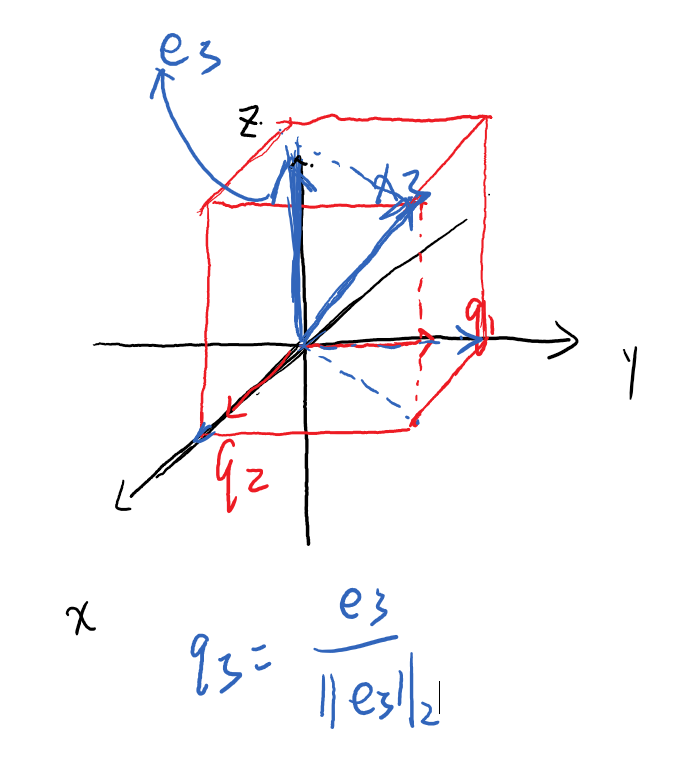 e3
z
x3
q1
y
q2
x
q3 = e3 / ||e3||2